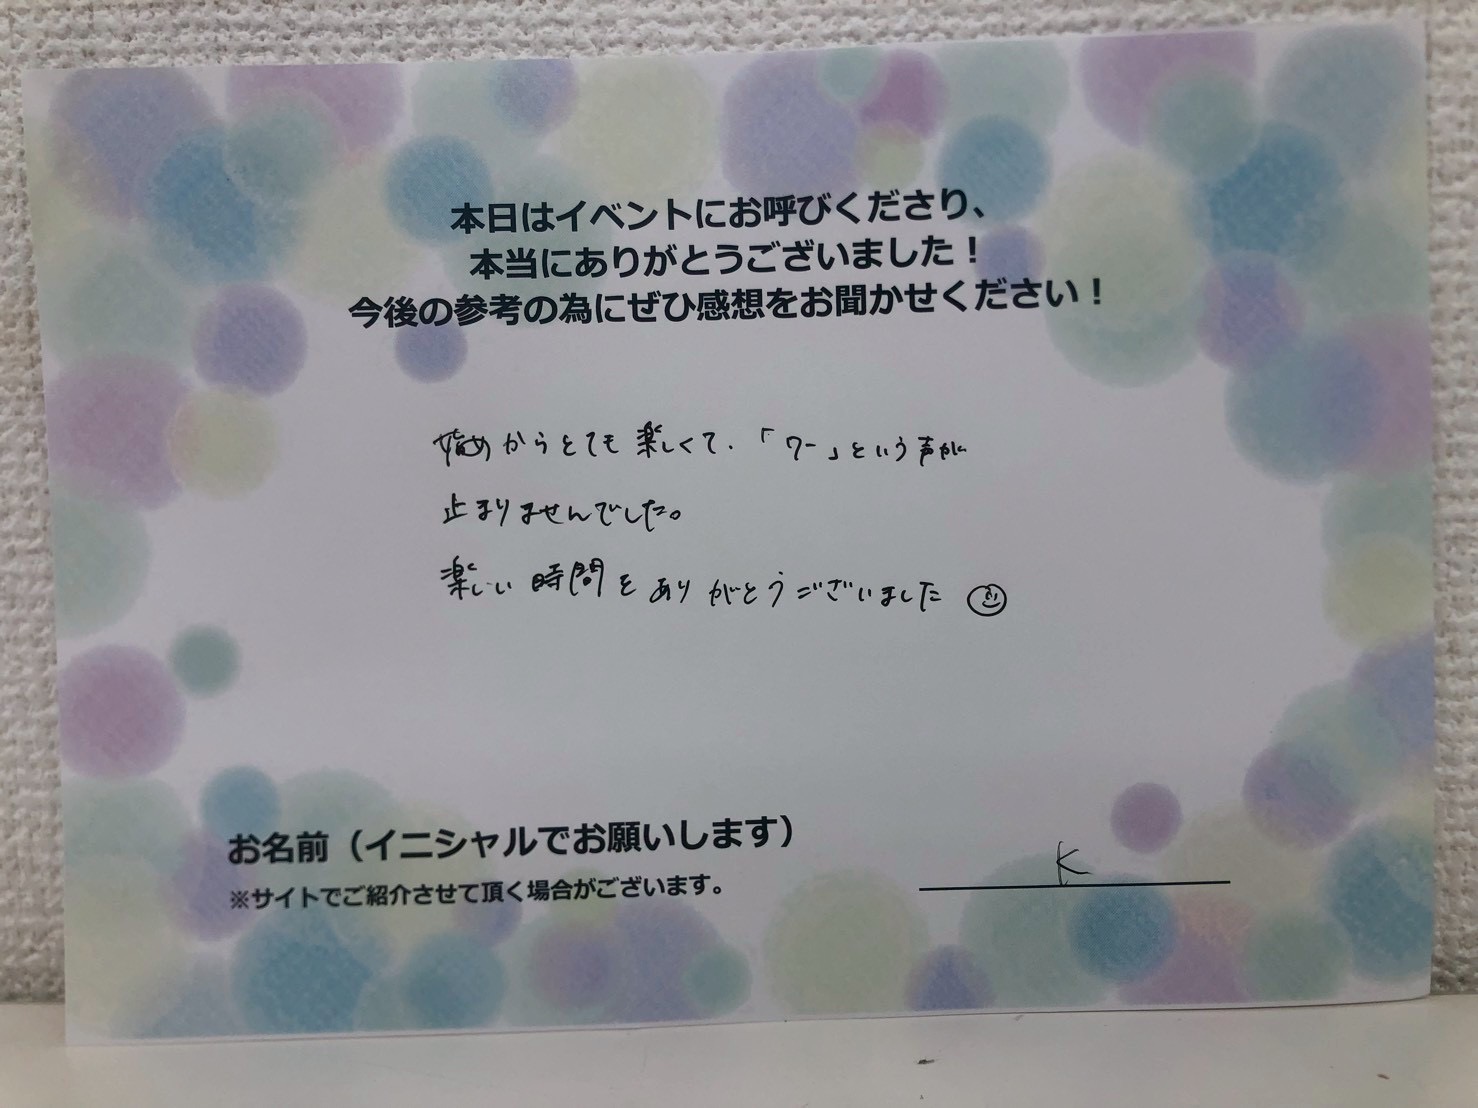 本日はイベントにお呼びくださり、
本当にありがとうございました！
今後の参考の為にぜひ感想をお聞かせください！
始めからとても楽しくて、「ワー」という声が
止まりませんでした。
楽しい時間をありがとうございました
お名前（イニシャルでお願いします）
※サイトでご紹介させて頂く場合がございます。
K